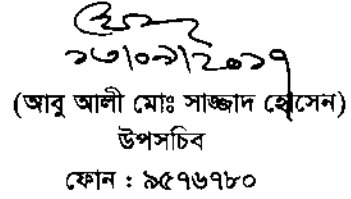 ১৩/০৯/২০১৭
(আবু আলী মোঃ সাজ্জাদ হোসেন)
উপসচিব
ফোন : ৯৫৭৬৭৮০